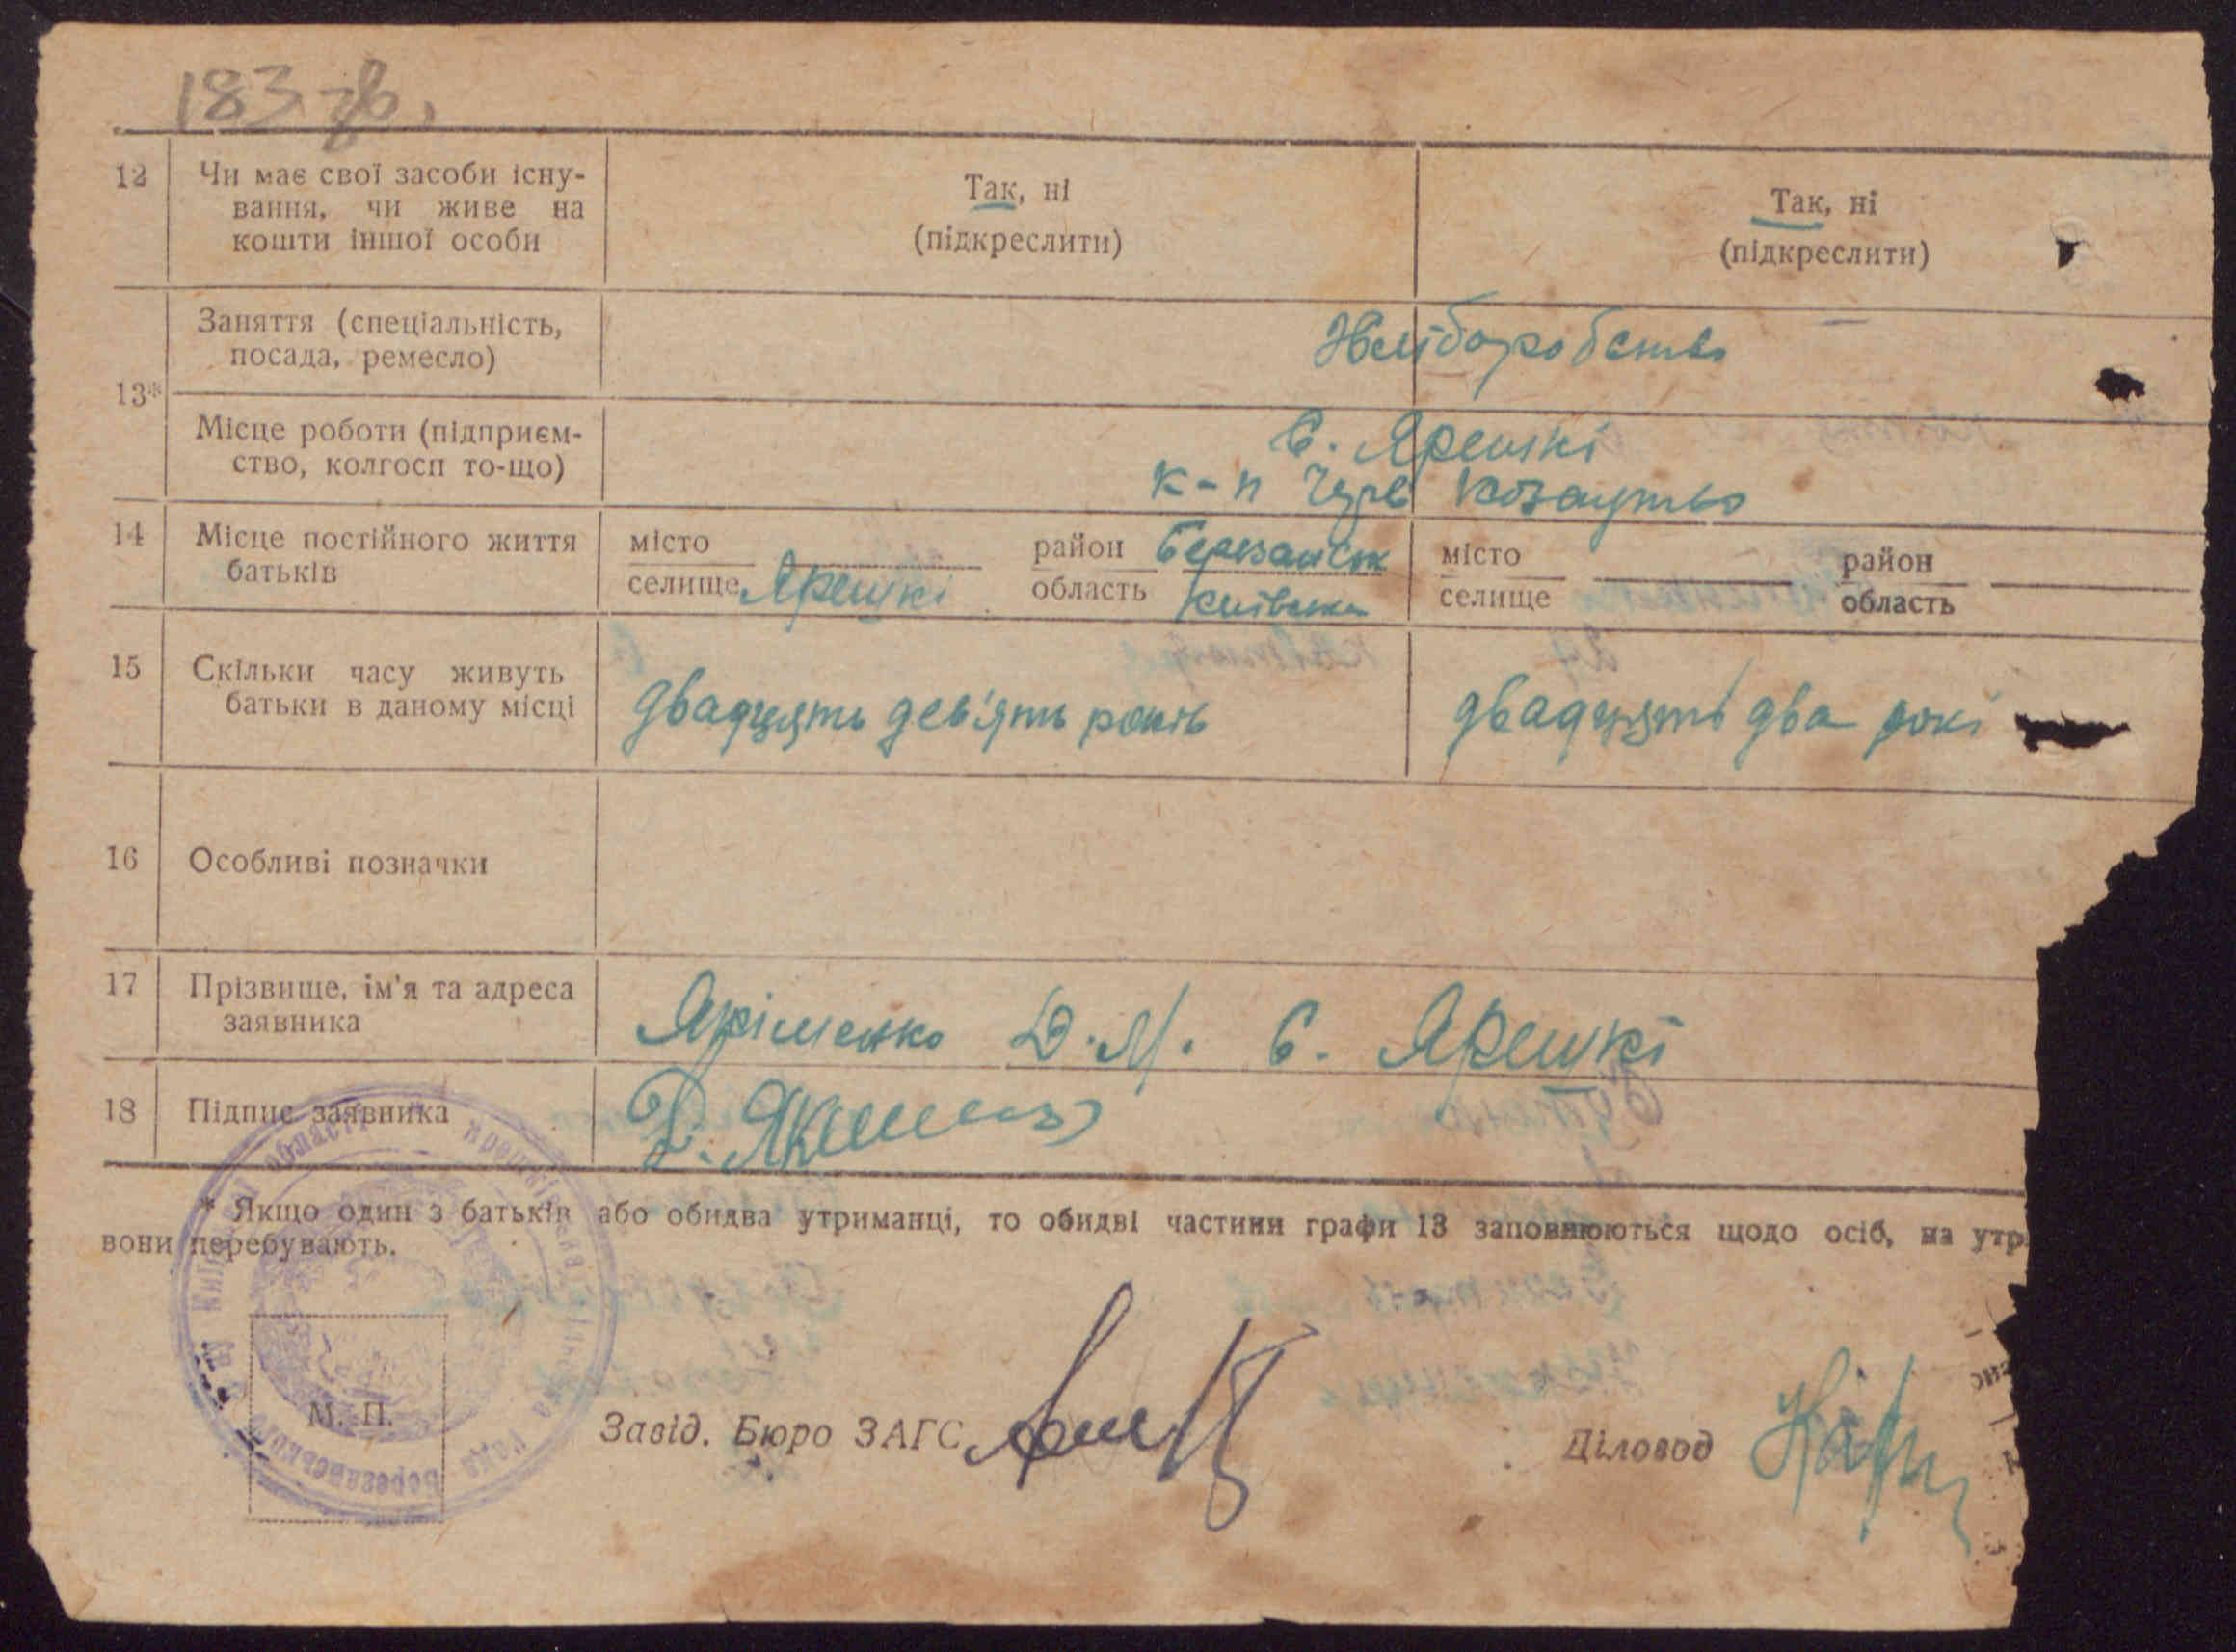 183 зв.
12 Чи має свої засоби існу-
вання, чи живе на
кошти іншої особи
Так, ні
(підкреслити)
Так, ні
(підкреслити)
13*
Заняття (спеціальність,
посада, ремесло)
Хліборобство
Місце роботи (підприєм-
ство, колгосп то-що)
с. Ярешкі
к-п Черв козацтво
14 Місце постійного життя
батьків
місто
селище Ярешкі
район Березанськ
область Київська
місто
селище
район
область
15 Скільки часу живуть
батьки в даному місці
двадцять дев'ять років
двадцять два рокі
16 Особливі позначки
17 Прізвище, ім'я та адреса
заявника
Яріменко Д. М. с. Ярешкі
18 Підпис заявника
Д.
* Якщо один з батьків або обидва утриманці, то обидві частини графи 13 заповнюються щодо осіб, на утр
вони перебувають.
М. П.
Завід. Бюро ЗАГС
Діловод